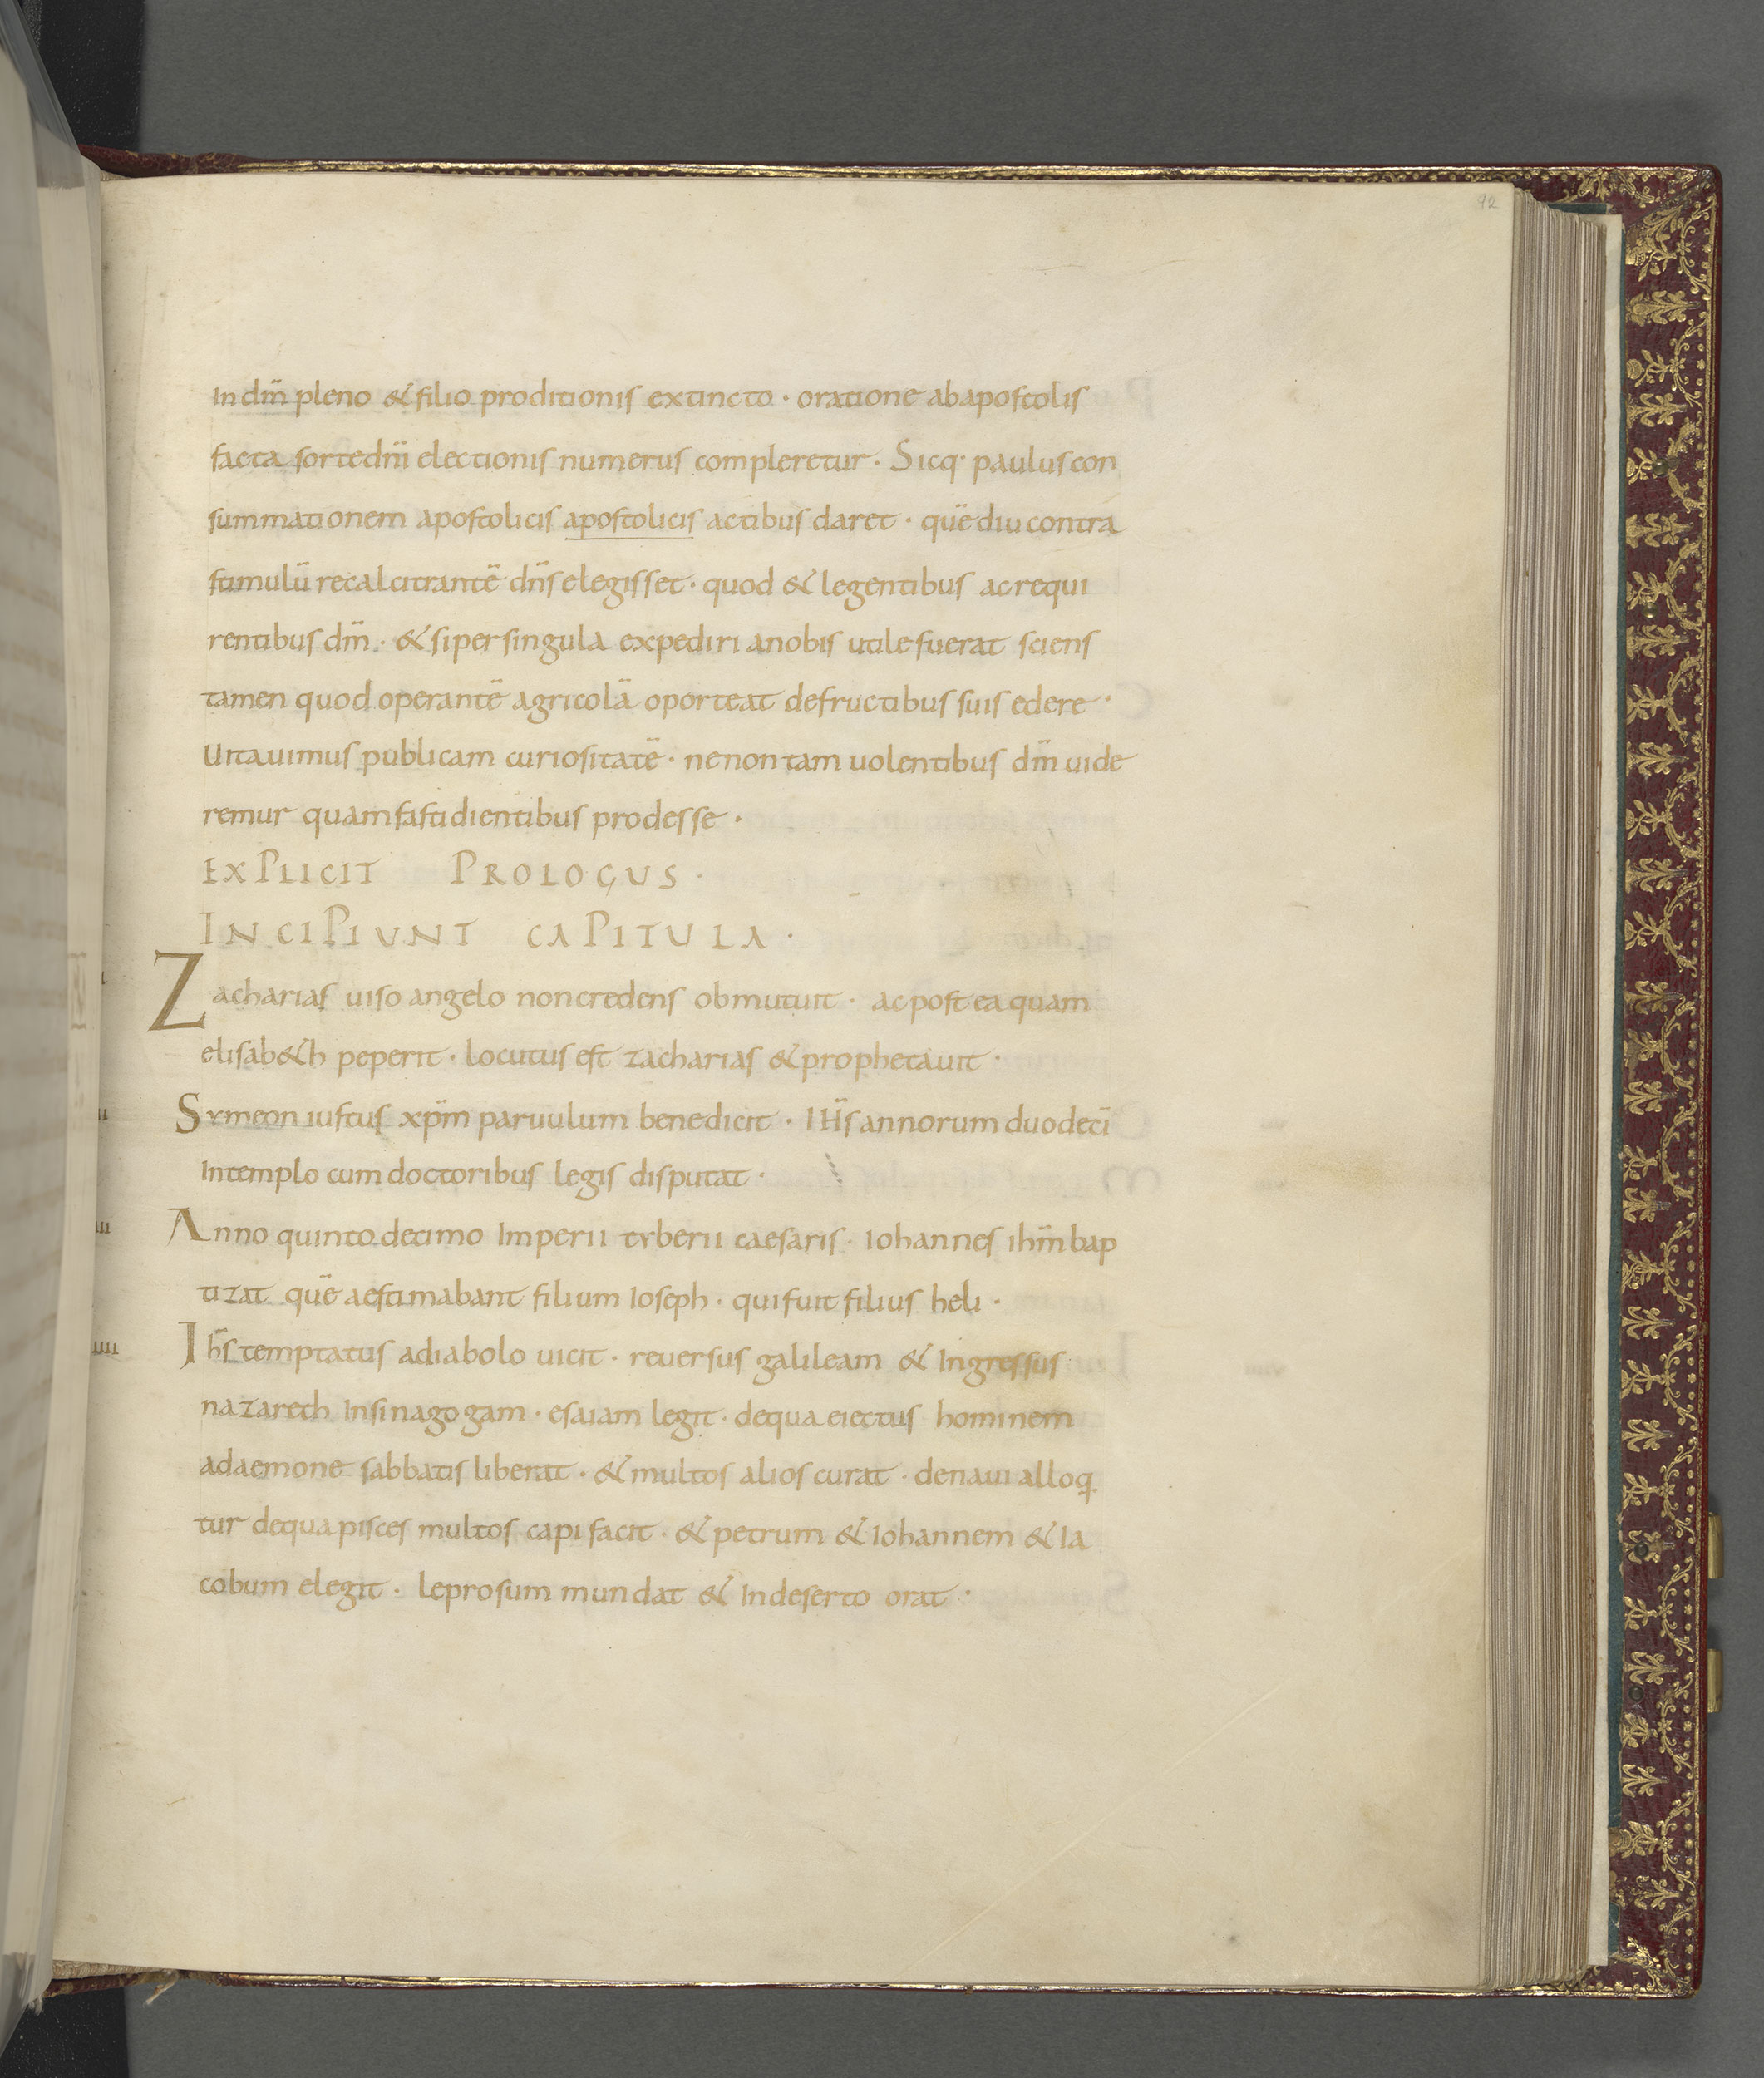 92
In dm̄ pleno & filio proditionis extincto · oratione ab apostolis
facta sorte dn̄i electionis numerus compleretur · Sicq· paulus con
summationem apostolicis apostolicis actibus daret · quē diu contra
stimulū recalcitrantē dn̄s elegisset · quod & legentibus ac requi
rentibus dm̄ · & si per singula expediri a nobis utile fuerat sciens
tamen quod operantē agricolā oporteat de fructibus suis edere ·
Uitauimus publicam curiositatē · ne non tam uolentibus dm̄ uide
remur quam fastidientibus prodesse ·
EXPLICIT PROLOGUS ·
INCIPIUNT CAPITULA ·
Zacharias uiso angelo non credens obmutuit · ac postea quam
elisab&h peperit · locutus est zacharias & prophetauit ·
II Symeon iustus xpm̄ paruulum benedicit · IHs̄ annorum duodecī
In templo cum doctoribus legis disputat ·
III Anno quinto decimo Imperii tyberii caesaris · Iohannes ihm̄ bap
tizat quē aestimabant filium Ioseph · qui fuit filius heli ·
IIII Ihs̄ temptatus a diabolo uicit · reuersus galileam & Ingressus
nazareth In sinagogam · esaiam legit · de qua eiectus hominem
a daemone sabbatis liberat · & multos alios curat · de naui alloq
tur de qua pisces multos capi facit · & petrum & Iohannem & Ia
cobum elegit · leprosum mundat & In deserto orat ·